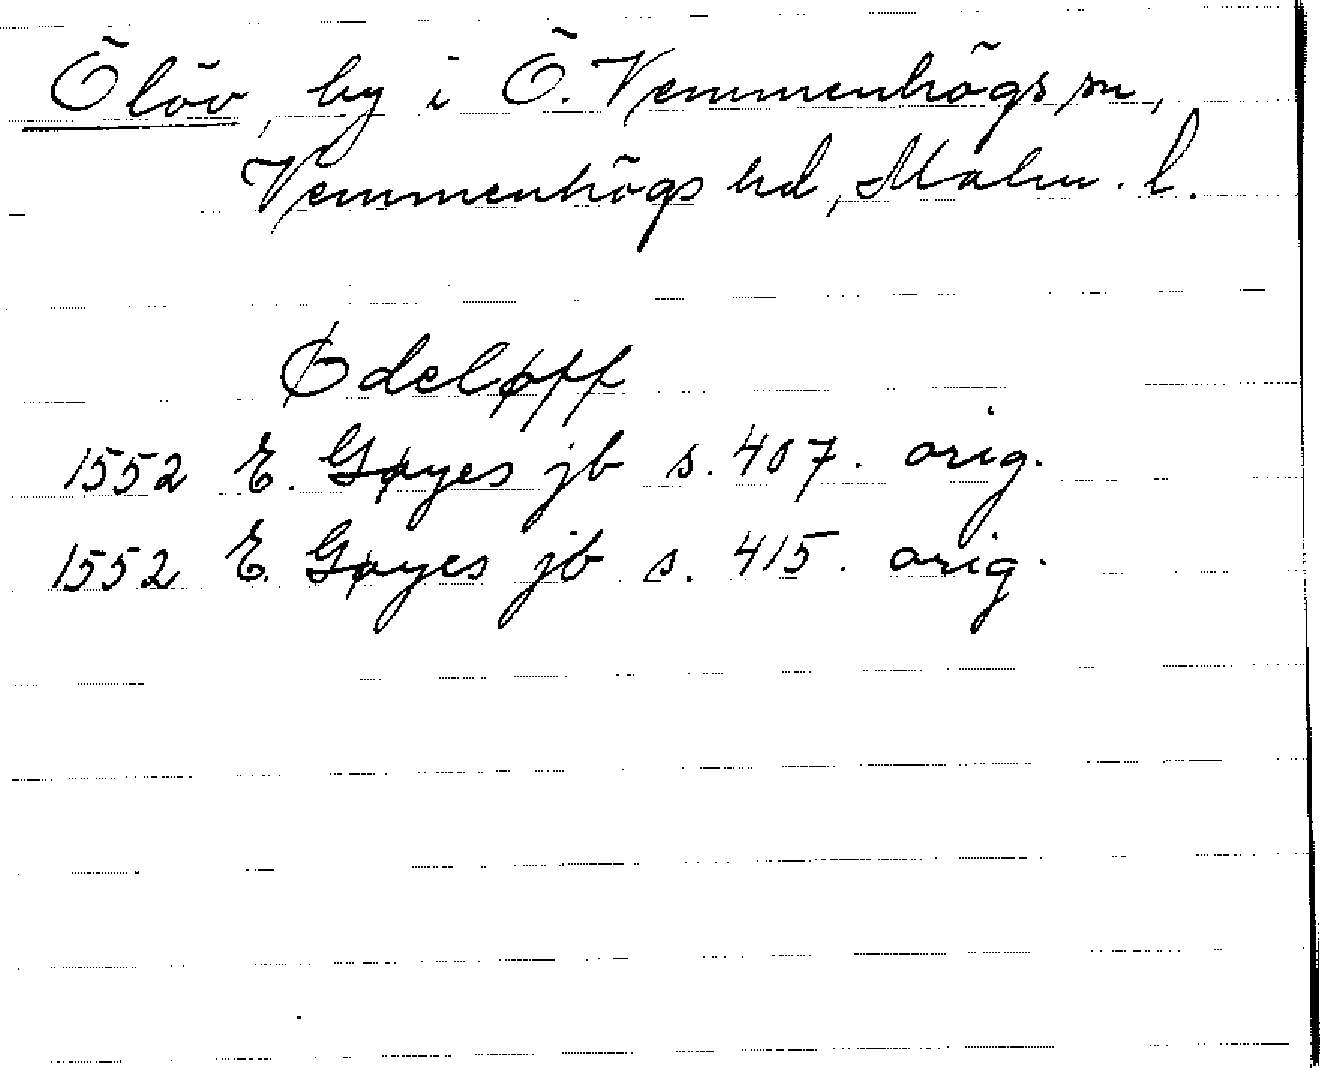 Ölöv, by i Ö. Vemmenhögs sn,
Vemmenhögs hd, Malm. l.
Ødeløff
1552 E. Gøyes jb s. 407. orig.
1552 E. Gøyes jb s. 415. orig.